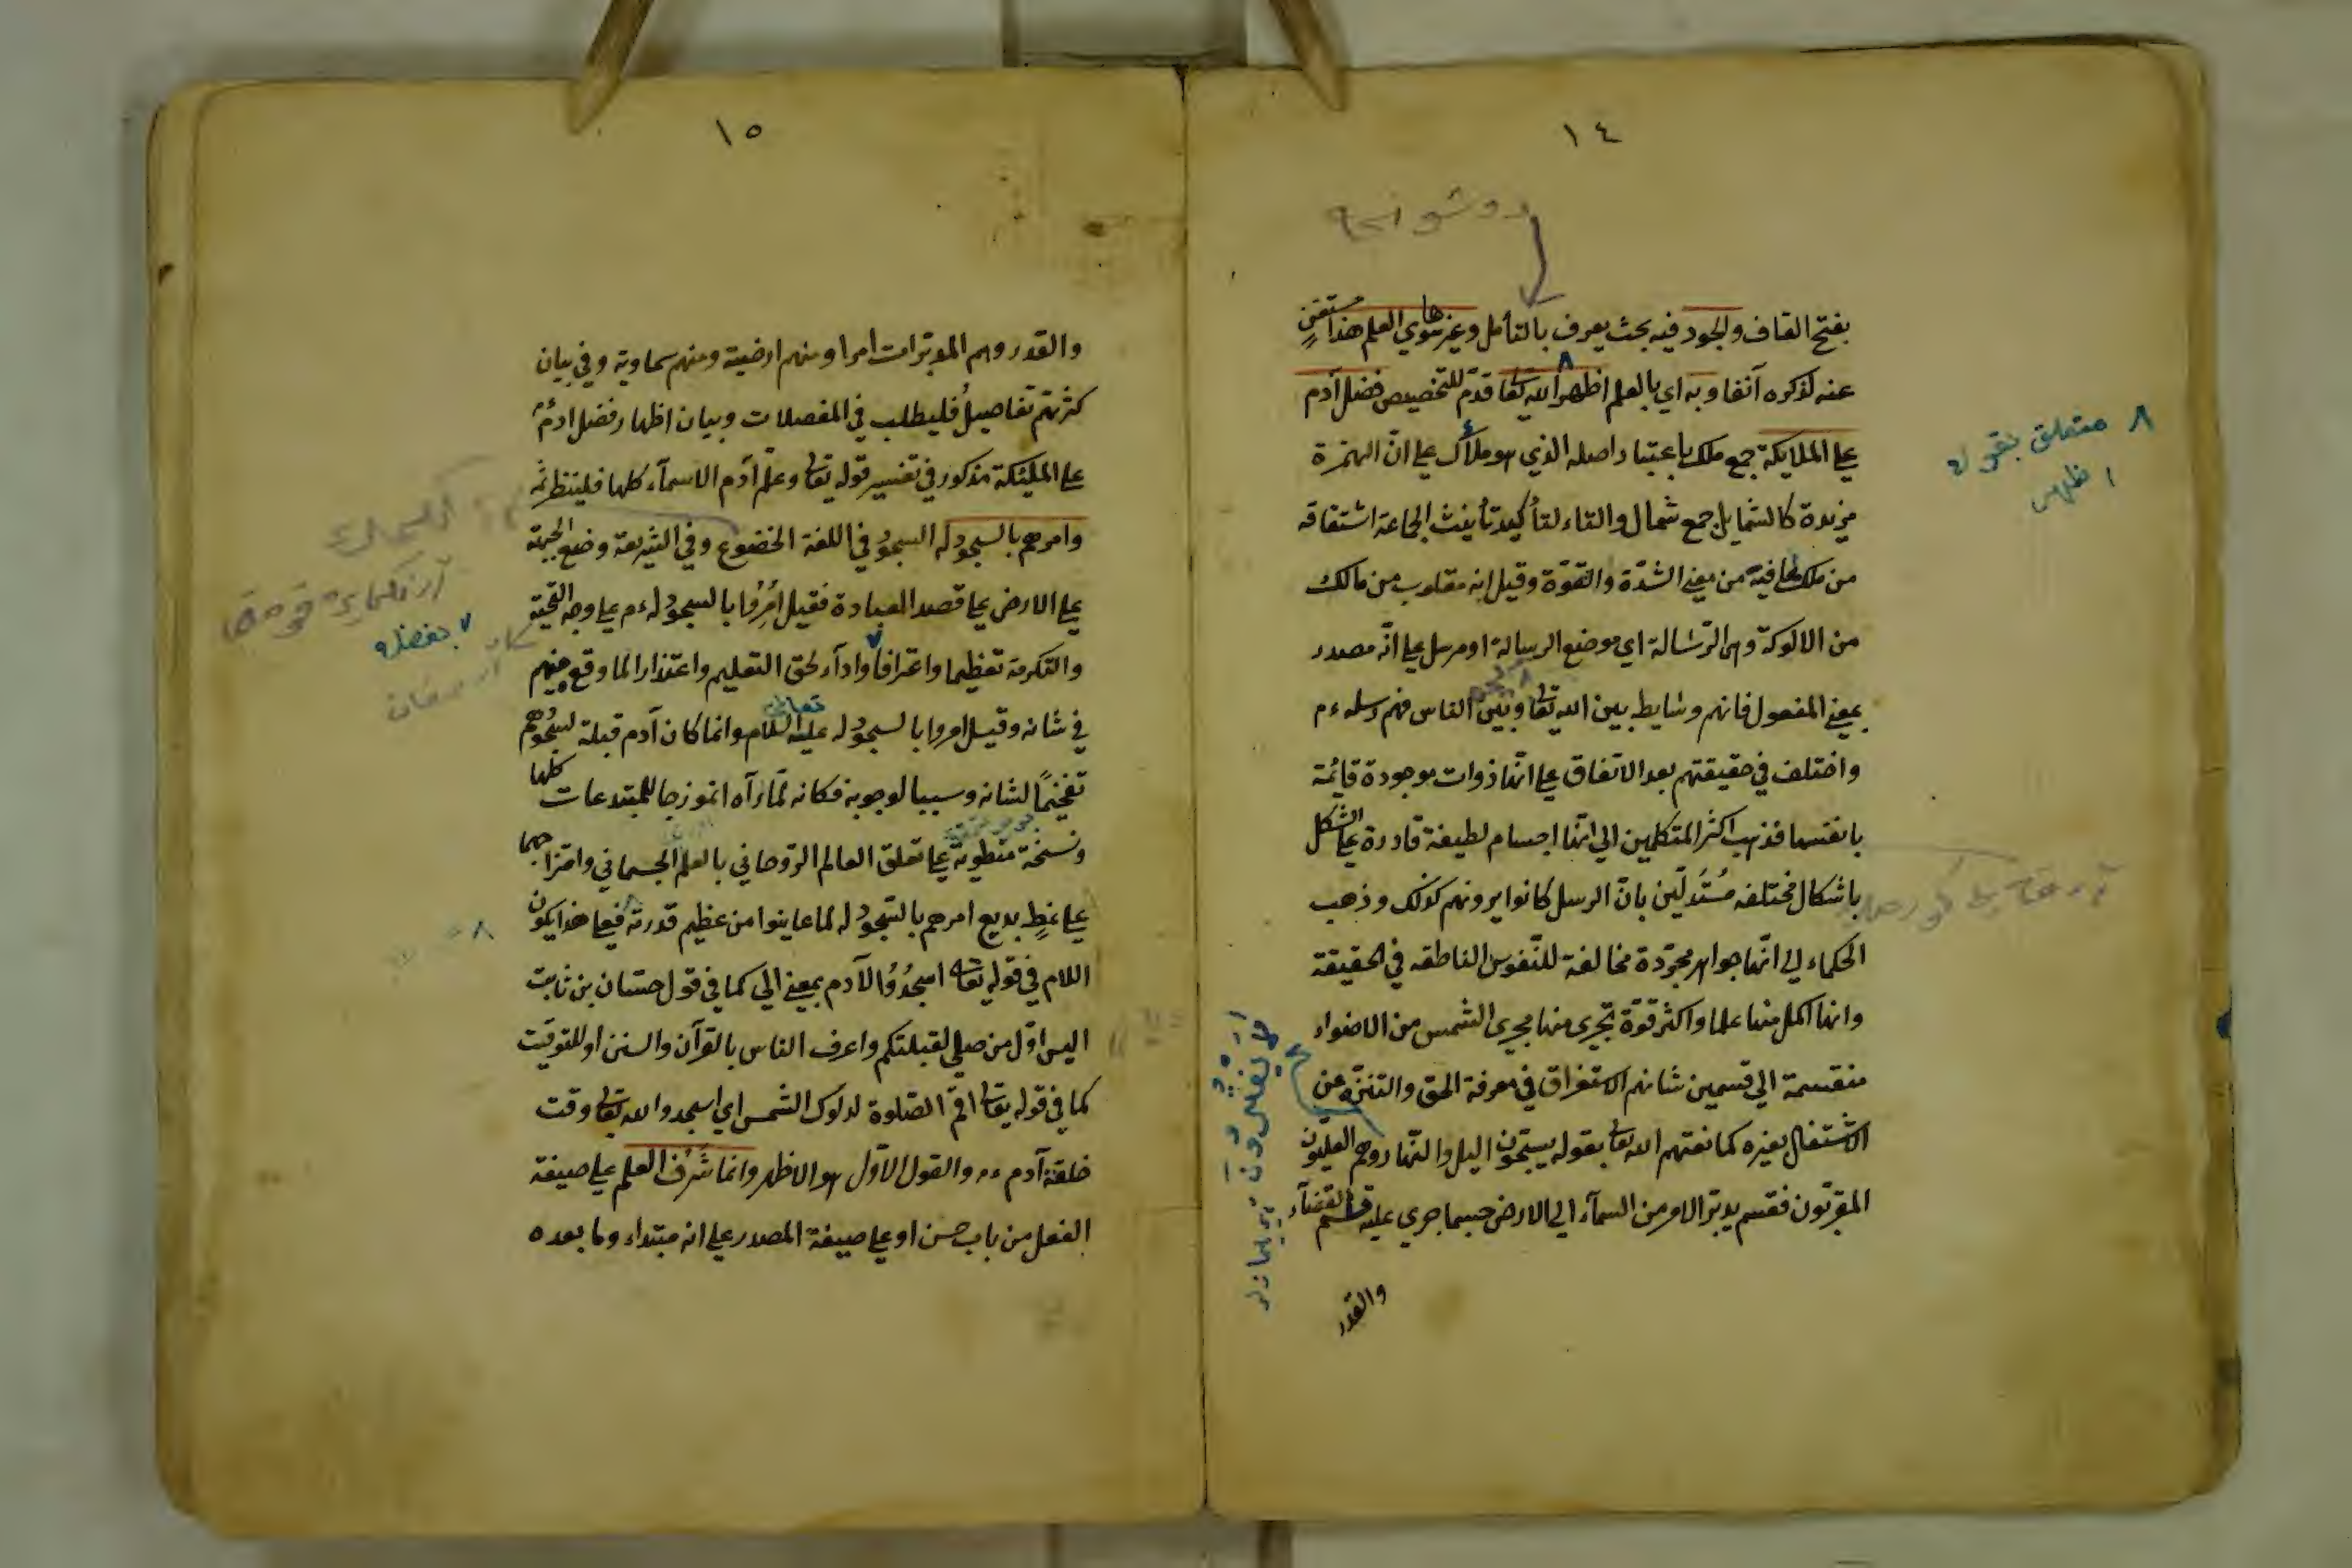 ١٤
بفتح القاف والجود فيه بحث يعرف بالتأمل وغيرها سوي العلم هذا مستغني
عنه لذكره آنفا وبه اي بالعلم اظهر الله تعا قدم للتخصيص فضل آدم
علي الملايكة جمع ملك باعتبار اصله الذي هو ملأك علي انّ الهمزة
مزيدة كالشمايل جمع شمال والتاء لتأكيد تأنيث الجماعة اشتقاقه
من ملك لما فيه من معني الشدّة والقوّة وقيل انه مقلوب من مالك
من الالوكة وهي الرّسالة اي موضع الرسالة او مرسل علي انّه مصدر
بمعني المفعول فانهم وسايط بين الله تعا وبين الناس فهم رسله ءم
واختلف في حقيقتهم بعد الاتفاق علي انّها ذوات موجودة قائمة
بانفسها فذهب اكثر المتكلمين الي انّها اجسام لطيفة قادرة علي الشكل
باشكال مختلفه مُستدلّين بانّ الرسل كانوا يرونهم كذلك وذهب
الحكماء الي انّها جواهر مجرّدة مخالفة للنّفوس الناطقه في الحقيقة
وانها اكمل منها علما واكثر قوّة تجري منها مجري الشمس من الاضواء
منقسمة الي قسمين شانهم الاستغراق في معرفة الحق والتنزّه عن
الاشتغال بغيره كما نعتهم الله تعا بقوله يسبّحون اليل والنّهار وهم العليّون
المقرّبون فقسم يدبّر الامر من السمآء الي الارض حسبما جري عليه قلم القضآء
والقدر
٨ متعلق بقوله
اظهر
١٥
والقدر وهم المدبّرات امرا ومنهم ارضية ومنهم سماوية وفي بيان
كثرتهم تفاصيلُ فليطلب في المفصلات وبيان اظهار فضل ادم ءم
علي المليكة مذكور في تفسير قوله تعا وعلّم آدم الاسمآء كلها فلينظر ثمّه
وامرهم بالسجود له السجود في اللغة الخضوع وفي الشريعة وضع الجبهة
علي الارض علي قصد العبادة فقيل اُمِرُوا بالسجود له ءم علي وجه التحيّة
والتكرمة تعظيما واعترافا واداء لحق التعليم واعتذارا لما وقع منهم
في شانه وقيل امروا بالسجود له عليه السلام وانما كان آدم قبلة لسجودهم
تفخيمًا لشانه وسببا لوجوبه فكانه لمّا رآه انموزجا للمبتدعات كلها
ونسخة منطوية علي تعلق العالم الرّوحاني بالعلم الجسماني وامتزاجهما
علي نمطٍ بديع امرهم بالسّجود له لما عاينوا من عظيم قدرته فعلي هذا يكون
اللام في قوله تعا اسجدُوُا لآدم بمعني الي كما في قول حسّان بن ثابت
اليس اوّل من صلي لقبلتكم واعرف الناس بالقرآن والسنن او للتوقيت
كما في قوله تعا اقم الصّلوة لدلوك الشمس اي اسجدوا لله تعا وقت
خلقة آدم ءم والقول الاوّل هو الاظهر وانما شَرُف العلم علي صيغة
الفعل من باب حسن او علي صيغة المصدر علي انه مبتداء وما بعده
٧ بفضله